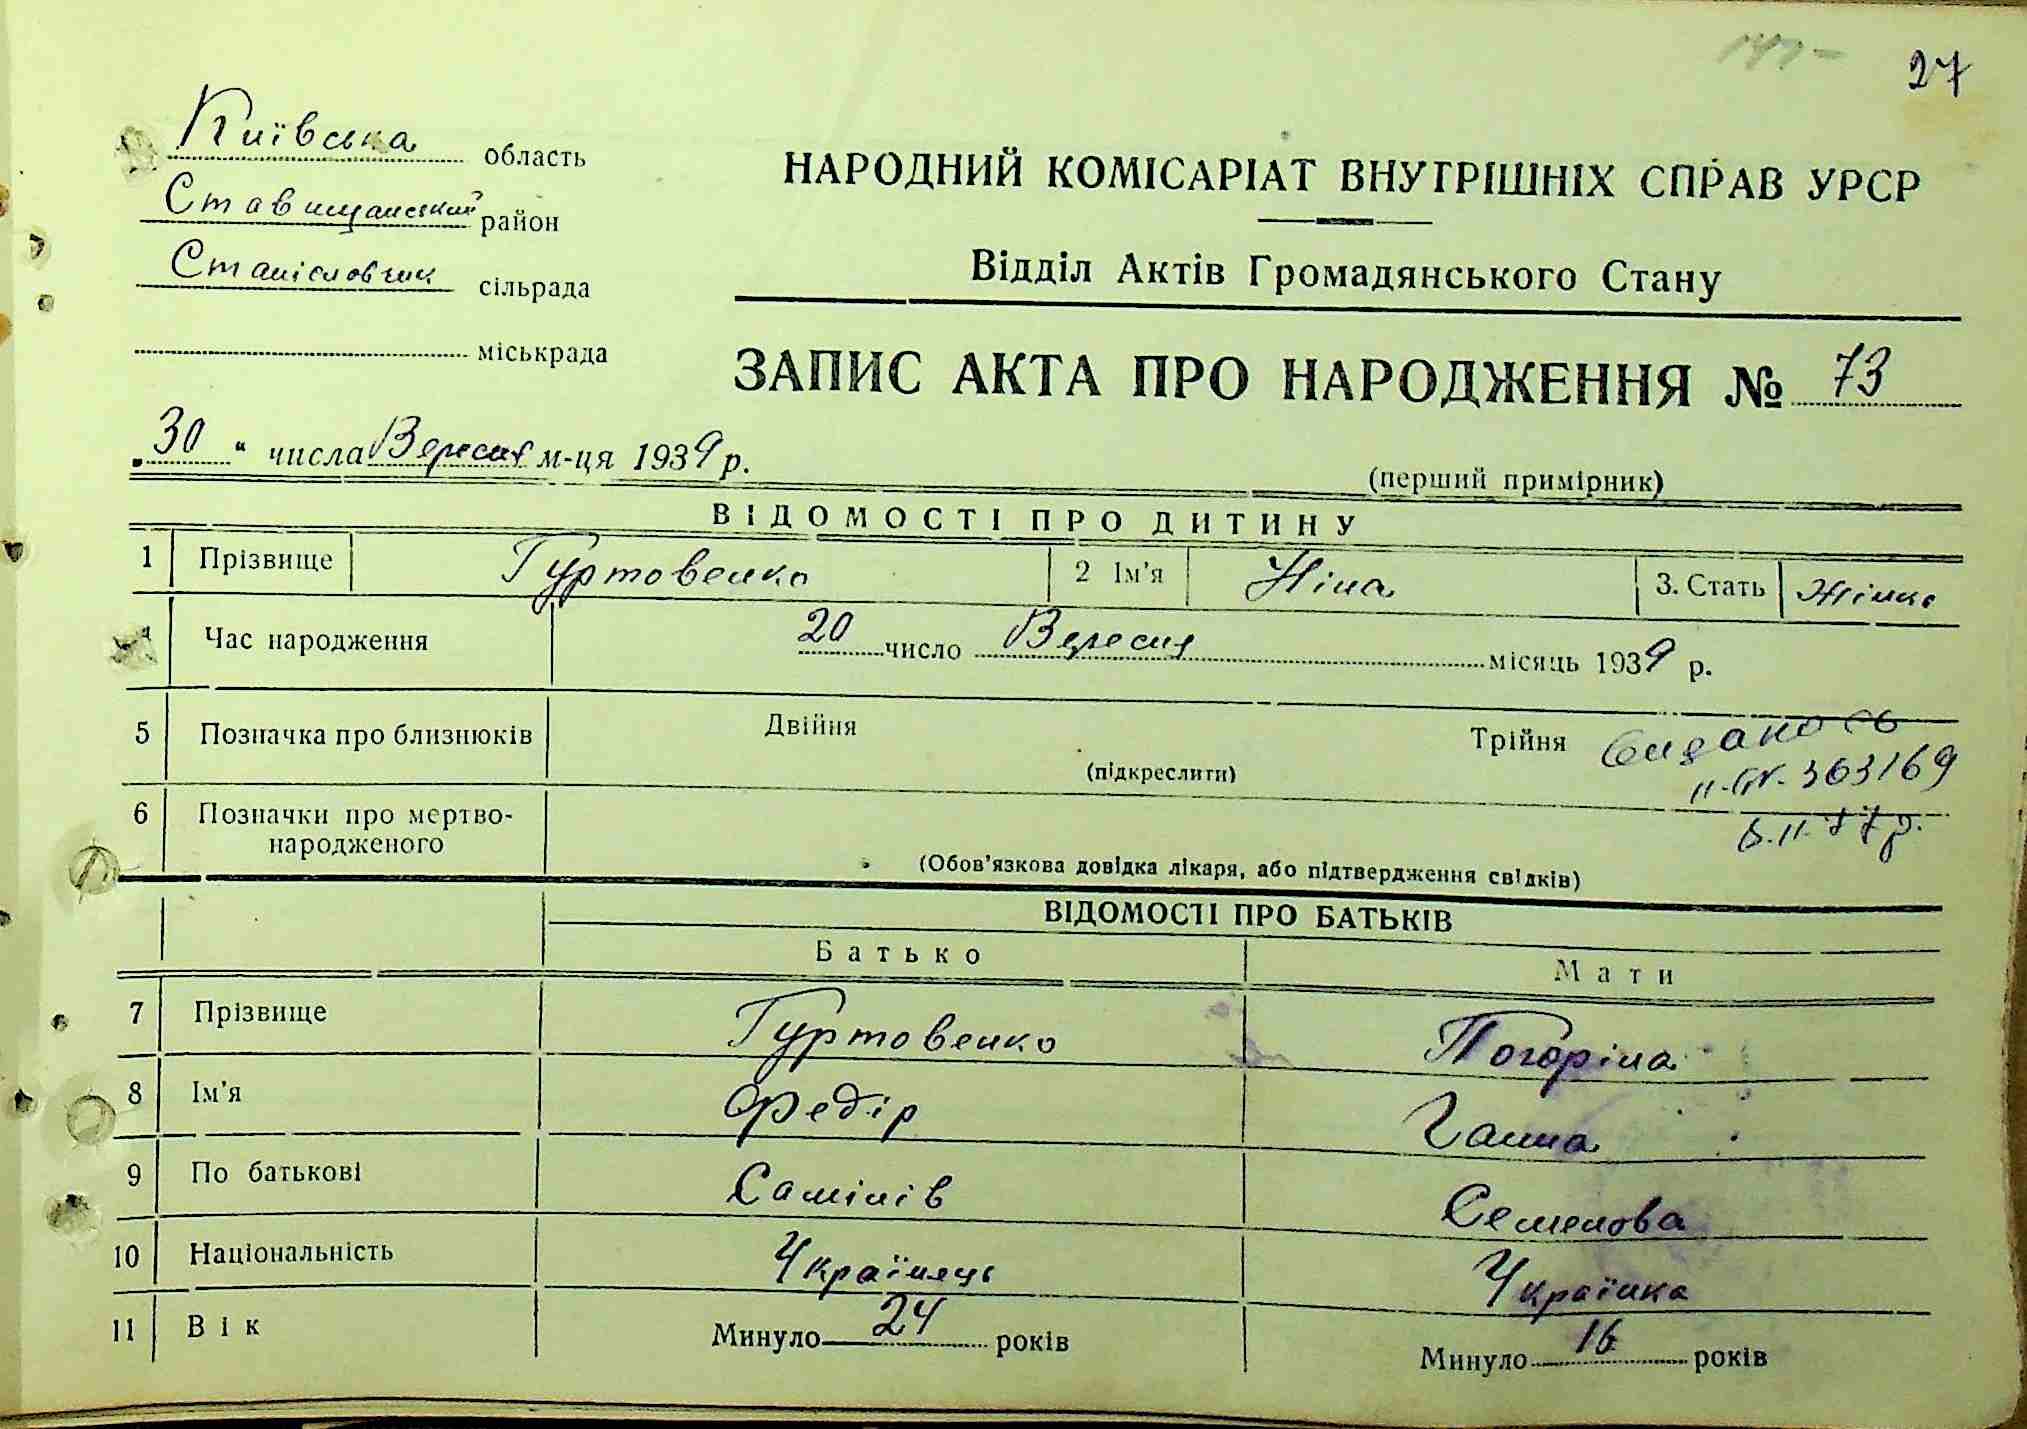 27
Київська область
Ставищанський район
Станіславчик сільрада
міськрада
НАРОДНИЙ КОМІСАРІАТ ВНУТРІШНІХ СПРАВ УРСР
Відділ Актів Громадянського Стану
ЗАПИС АКТА ПРО НАРОДЖЕННЯ № 73
„30“ числа Вересня м-ця 1939 р.
(перший примірник)
ВІДОМОСТІ ПРО ДИТИНУ
1 Прізвище Гуртовенко 2 Ім'я Ніна 3. Стать Жіноча
4 Час народження 20 число Вересня місяць 1939 р.
5 Позначка про близнюків Двійня Трійня
(підкреслити)
363169
6 Позначки про мертво-
народженого
(Обов'язкова довідка лікаря, або підтвердження свідків)
ВІДОМОСТІ ПРО БАТЬКІВ
Батько Мати
7 Прізвище Гуртовенко Погоріла
8 Ім'я Федір Ганна
9 По батькові Семенова
10 Національність Українець Українка
11 Вік Минуло 24 років Минуло 16 років